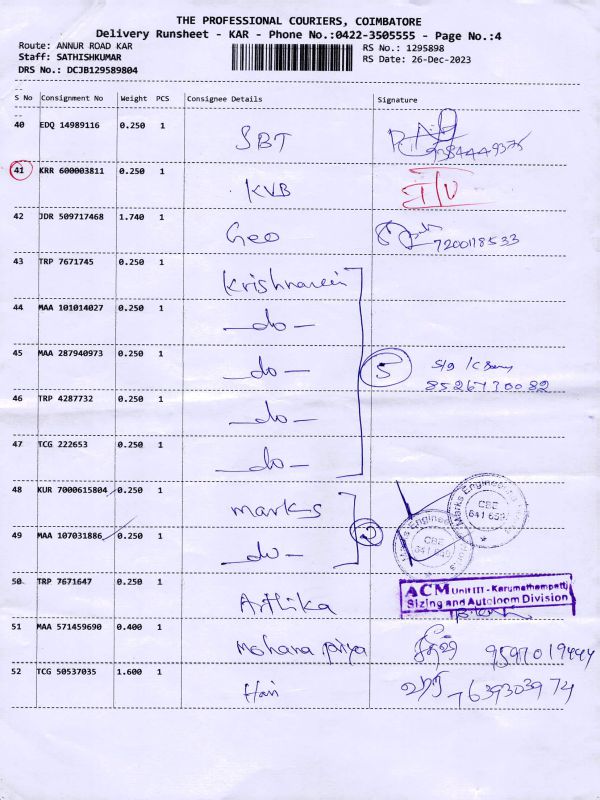 THE PROFESSIONAL COURIERS, COIMBATORE
Delivery Runsheet - KAR - Phone No.:0422-3505555 - Page No.:4
Route: ANNUR ROAD KAR
Staff: SATHISHKUMAR
DRS No.: DCJB129589804
RS No.: 1295898
RS Date: 26-Dec-2023
S No Consignment No Weight PCS Consignee Details Signature
40 EDQ 14989116 0.250 1 SBT
41 KRR 600003811 0.250 1 KVB
42 JDR 509717468 1.740 1 Geo 7200118533
43 TRP 7671745 0.250 1
44 MAA 101014027 0.250 1 -do-
45 MAA 287940973 0.250 1 -do- 5
8526730082
46 TRP 4287732 0.250 1 -do-
47 TCG 222653 0.250 1 -do-
48 KUR 7000615804 0.250 1 marks
49 MAA 107031886 0.250 1 -do- 2
Marks Engineering
CBE
641 659
50 TRP 7671647 0.250 1 Arthika
ACM Unit III - Karumathampatti
Sizing and Autoloom Division
51 MAA 571459690 0.400 1 Mohana priya 9597019444
52 TCG 50537035 1.600 1 Hari ஹரி 7639303974